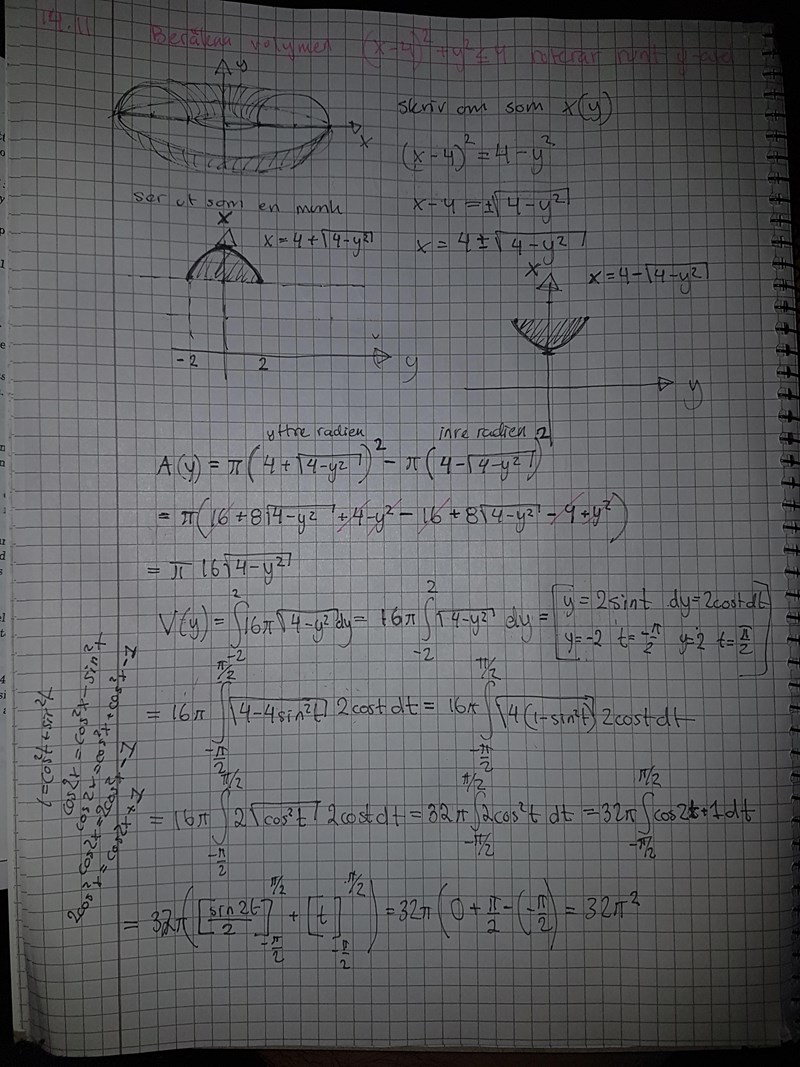 14.11 Beräkna volymen (x-4)² + y² ≤ 4 roterar runt y-axel
y
x
skriv om som x(y)
(x-4)² = 4-y²
ser ut som en munk
x-4 = ±√(4-y²)
x
x = 4+√(4-y²)
x = 4±√(4-y²)
x
x = 4-√(4-y²)
-2 2 y
y
yttre radien inre radien
A(y) = π(4+√(4-y²))² - π(4-√(4-y²))²
= π(16+8√(4-y²)+4-y²-16+8√(4-y²)-4+y²)
= π 16√(4-y²)
V(y) = ∫_{-2}^{2} 16π√(4-y²)dy = 16π ∫_{-2}^{2} √(4-y²) dy = [y=2sint dy=2costdt
y=-2 t=-π/2 y=2 t=π/2]
= 16π ∫_{-π/2}^{π/2} √(4-4sin²t) 2costdt = 16π ∫_{-π/2}^{π/2} √(4(1-sin²t)) 2costdt
= 16π ∫_{-π/2}^{π/2} 2√(cos²t) 2costdt = 32π ∫_{-π/2}^{π/2} 2cos²t dt = 32π ∫_{-π/2}^{π/2} cos2t+1dt
= 32π([sin2t/2]_{-π/2}^{π/2} + [t]_{-π/2}^{π/2}) = 32π(0+π/2-(-π/2)) = 32π²
1=cos²t+sin²t
cos2t=cos²t-sin²t
cos2t=cos²t+cos²t-1
cos2t=2cos²t-1
2cos²t=cos2t+1